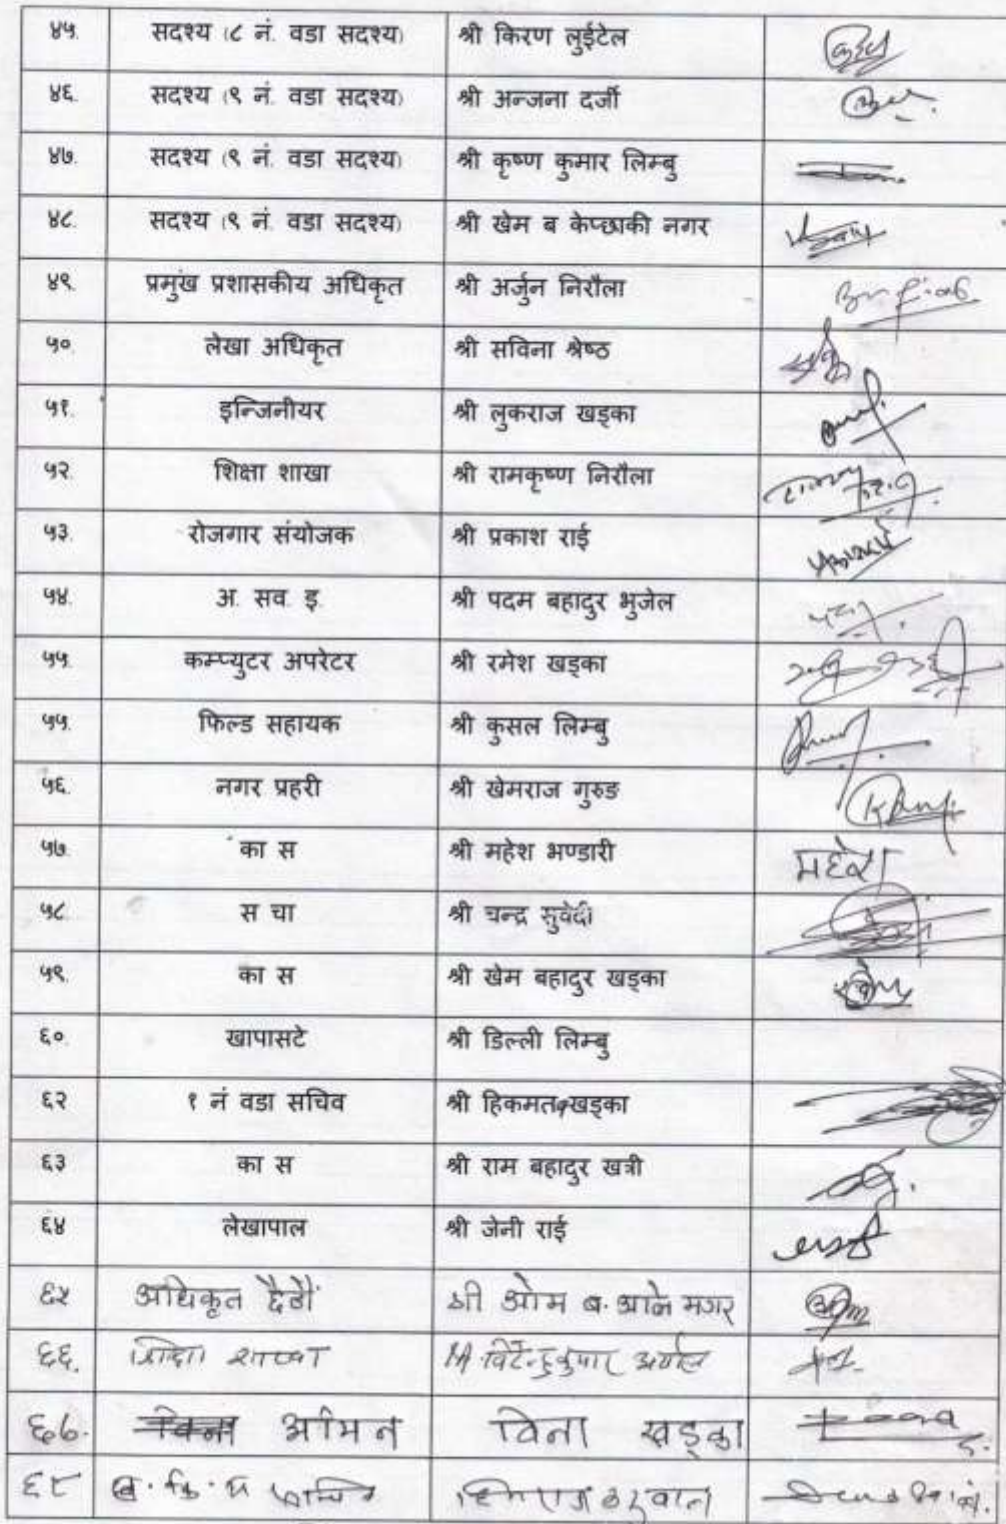 ४५. सदश्य (८ नं. वडा सदश्य) श्री किरण लुईटेल
४६. सदश्य (९ नं. वडा सदश्य) श्री अन्जना दर्जी
४७. सदश्य (९ नं. वडा सदश्य) श्री कृष्ण कुमार लिम्बु
४८. सदश्य (९ नं. वडा सदश्य) श्री खेम ब केप्छाकी नगर
४९. प्रमुंख प्रशासकीय अधिकृत श्री अर्जुन निरौला
५०. लेखा अधिकृत श्री सविना श्रेष्ठ
५१. इन्जिनीयर श्री लुकराज खड्का
५२. शिक्षा शाखा श्री रामकृष्ण निरौला
५३. रोजगार संयोजक श्री प्रकाश राई
५४. अ. सव. इ. श्री पदम बहादुर भुजेल
५५. कम्प्युटर अपरेटर श्री रमेश खड्का
५५. फिल्ड सहायक श्री कुसल लिम्बु
५६. नगर प्रहरी श्री खेमराज गुरुङ
५७. का स श्री महेश भण्डारी महेश
५८. स चा श्री चन्द्र सुवेदी
५९. का स श्री खेम बहादुर खड्का
६०. खापासटे श्री डिल्ली लिम्बु
६२ १ नं वडा सचिव श्री हिकमत खड्का
६३ का स श्री राम बहादुर खत्री
६४ लेखापाल श्री जेनी राई
६५ अधिकृत छैठौं श्री ओम ब. आले मगर
६६. शिक्षा शाखा
६७. अमिन विना खड्का
६८